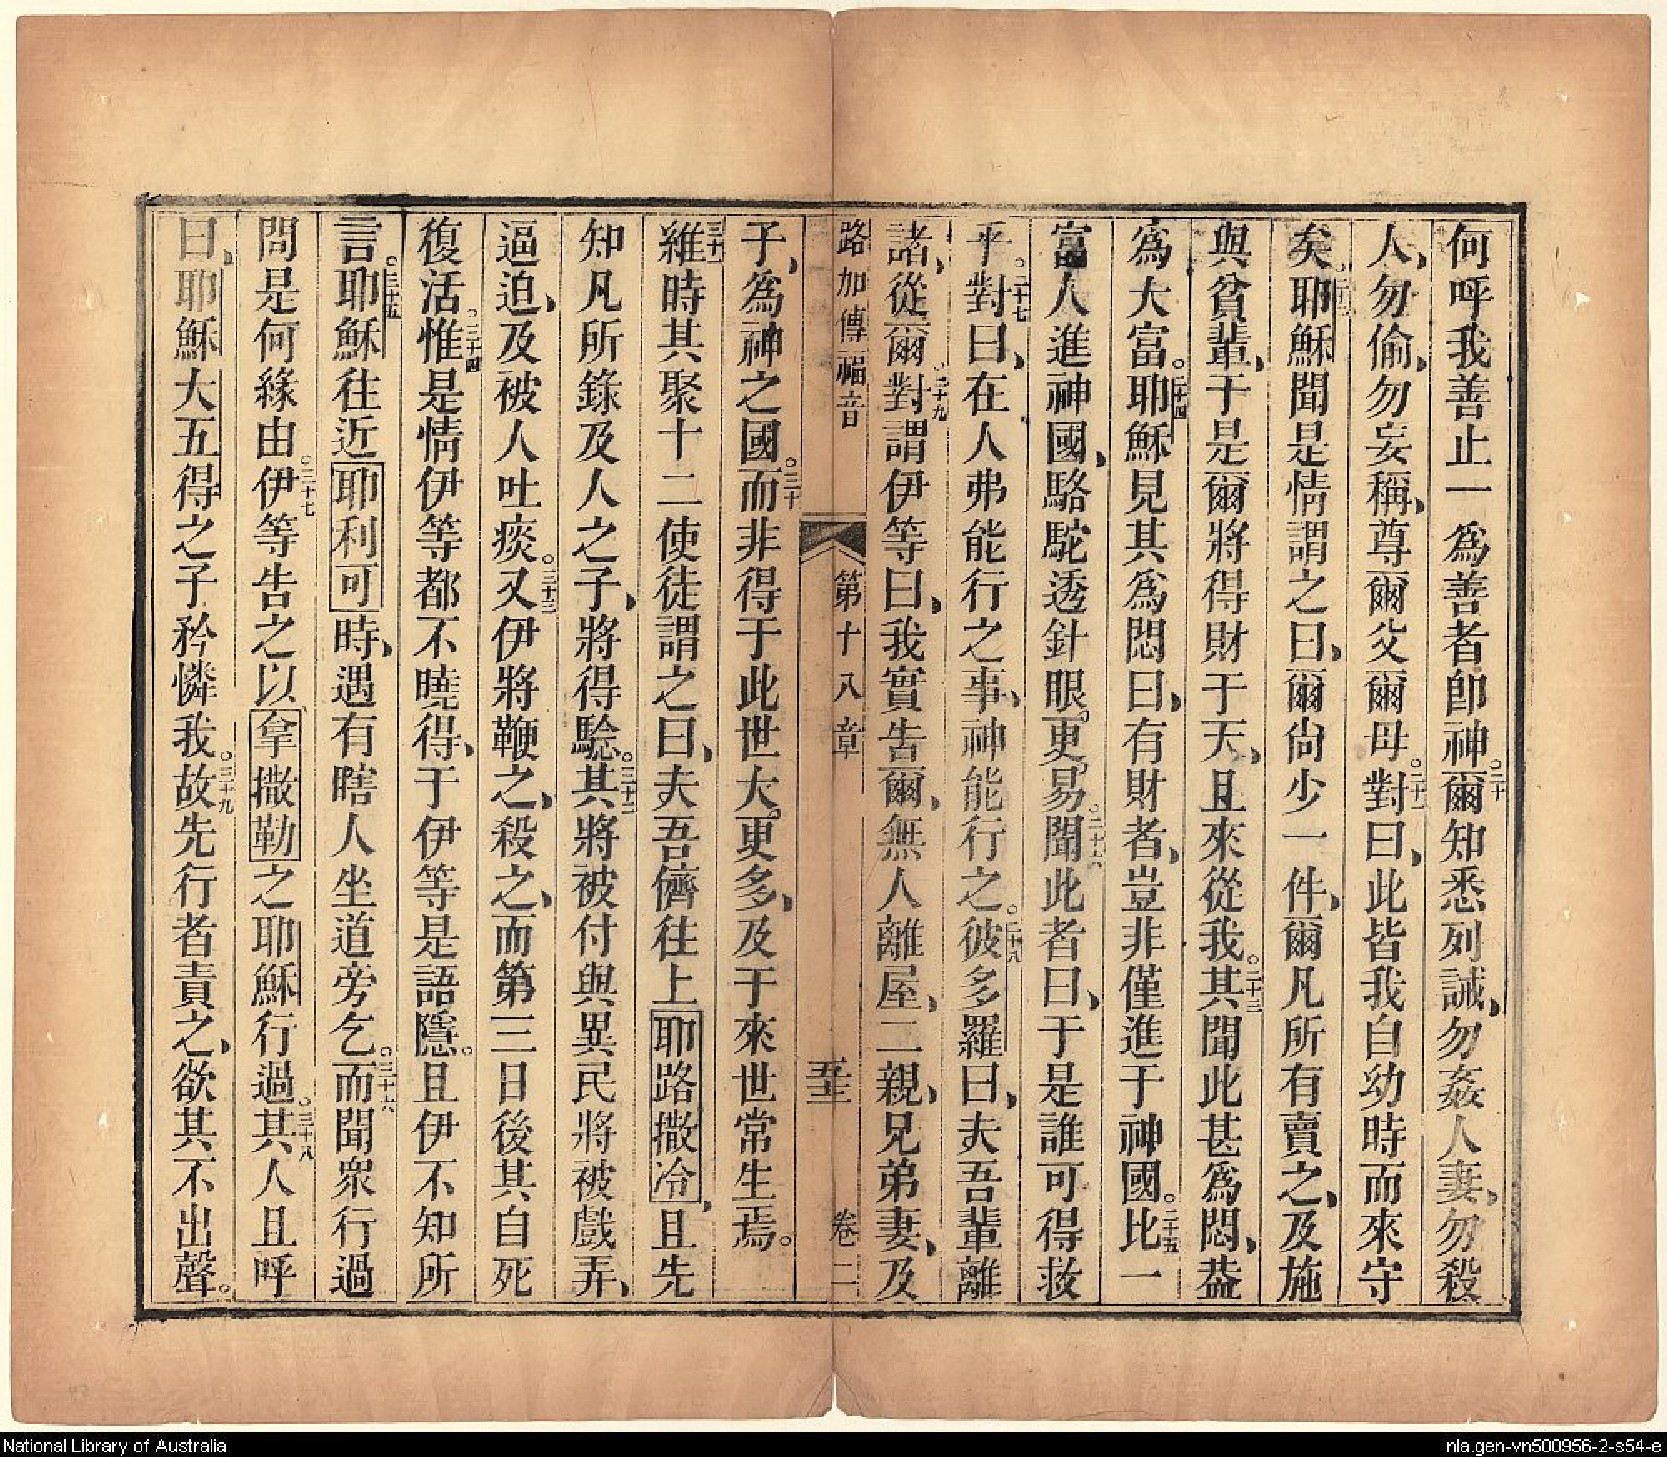 何呼我善止一爲善者即神。二十爾知悉列誡、勿姦人妻、勿殺
人、勿偷、勿妄稱、尊爾父爾母。二十一對曰、此皆我自幼時而來守
矣。二十二耶穌聞是情謂之曰、爾尙少一件、爾凡所有賣之、及施
與貧輩、于是爾將得財于天、且來從我。二十三其聞此甚爲悶、葢
爲大富。二十四耶穌見其爲悶曰、有財者、豈非僅進于神國。二十五比一
富人進神國、駱駝透針眼更易。二十六聞此者曰、于是誰可得救
乎。二十七對曰、在人弗能行之事、神能行之。二十八彼多羅曰、夫吾輩離
諸、從爾。二十九對謂伊等曰、我實告爾、無人離屋、二親、兄弟妻、及
路加傳福音 第十八章 五十三 卷二
子、爲神之國。三十而非得于此世大更多、及于來世常生焉。
三十一維時其聚十二使徒謂之曰、夫吾儕往上耶路撒冷、且先
知凡所錄及人之子、將得驗。三十二其將被付與異民將被戲弄、
逼迫、及被人吐痰。三十三又伊將鞭之、殺之、而第三日後其自死
復活。三十四惟是情伊等都不曉得、于伊等是語隱。且伊不知所
言。三十五耶穌往近耶利可時、遇有瞎人坐道旁乞。三十六而聞衆行過
問是何緣由。三十七伊等告之以拿撒勒之耶穌行過。三十八其人且呼
曰、耶穌大五得之子矜憐我。三十九故先行者責之、欲其不出聲。
National Library of Australia
nla.gen-vn500956-2-s54-e